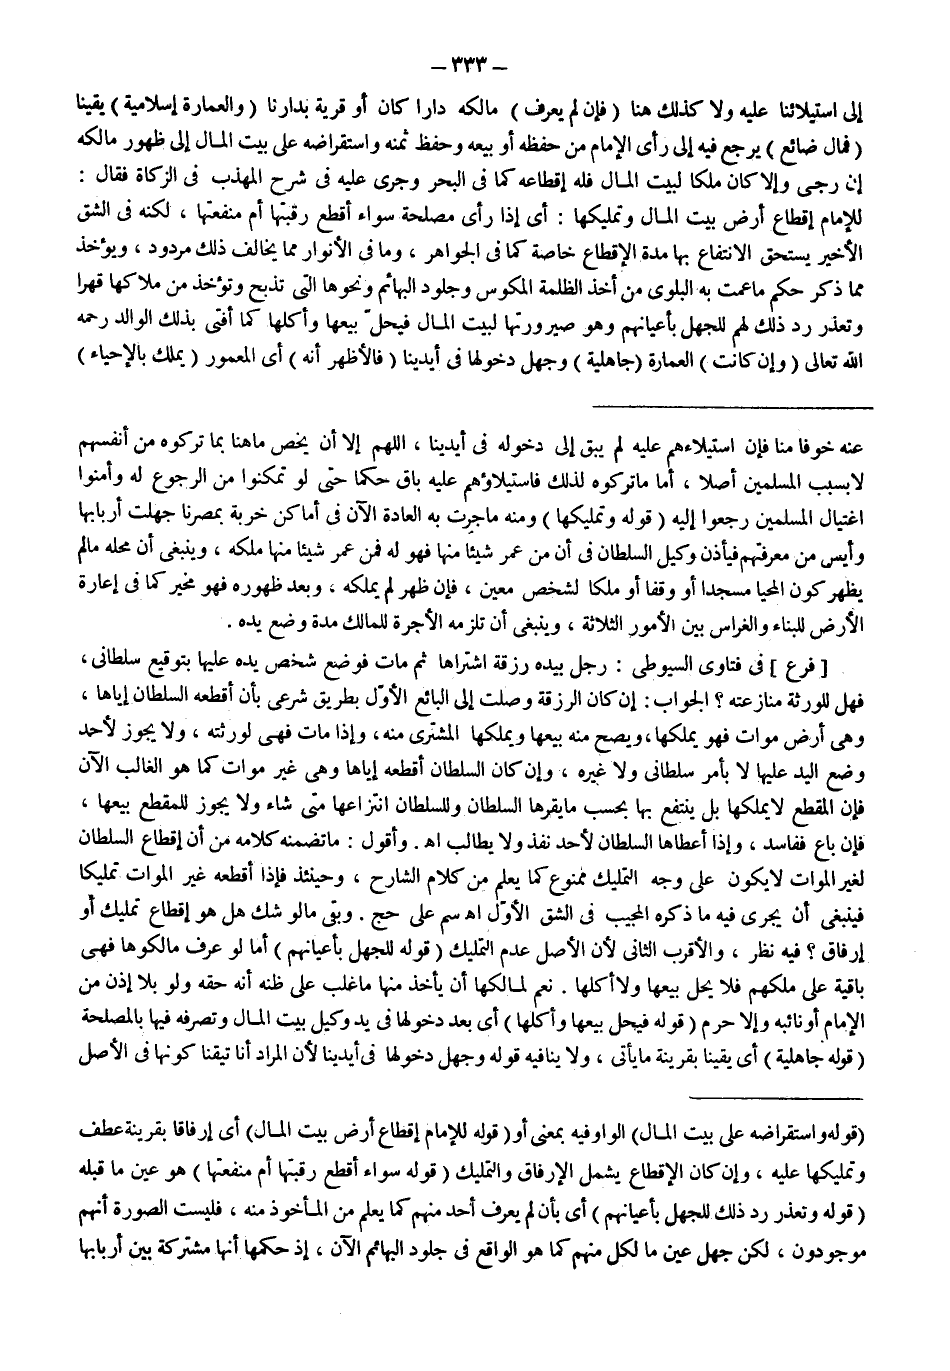 – ٣٣٣ –
إلى استيلائنا عليه ولا كذلك هنا ( فإن لم يعرف ) مالكه دارا كان أو قرية بدارنا ( والعمارة إسلامية ) يقينا
( فمال ضائع ) يرجع فيه إلى رأى الإمام من حفظه أو بيعه وحفظ ثمنه واستقراضه على بيت المـال إلى ظهور مالكه
إن رجى وإلا كان ملكا لبيت المـال فله إقطاعه كما فى البحر وجرى عليه فى شرح المهذب فى الزكاة فقال :
للإمام إقطاع أرض بيت المـال وتمليكها : أى إذا رأى مصلحة سواء أقطع رقبتها أم منفعتها ، لكنه فى الشق
الأخير يستحق الانتفاع بها مدة الإقطاع خاصة كما فى الجواهر ، وما فى الأنوار مما يخالف ذلك مردود ، ويؤخذ
مما ذكر حكم ماعمت به البلوى من أخذ الظلمة المكوس وجلود البهائم ونحوها التى تذبح وتؤخذ من ملاكها قهرا
وتعذر رد ذلك لهم للجهل بأعيانهم وهو صيرورتها لبيت المـال فيحلّ بيعها وأكلها كما أفتى بذلك الوالد رحمه
الله تعالى ( وإن كانت ) العمارة (جاهلية ) وجهل دخولها فى أيدينا ( فالأظهر أنه ) أى المعمور ( يملك بالإحياء )
عنه خوفا منا فإن استيلاءهم عليه لم يبق إلى دخوله فى أيدينا ، اللهم إلا أن يخص ماهنا بما تركوه من أنفسهم
لابسبب المسلمين أصلا ، أما ماتركوه لذلك فاستيلاؤهم عليه باق حكما حتى لو تمكنوا من الرجوع له وأمنوا
اغتيال المسلمين رجعوا إليه ( قوله وتمليكها ) ومنه ماجرت به العادة الآن فى أماكن خربة بمصرنا جهلت أربابها
وأيس من معرفتهم فيأذن وكيل السلطان فى أن من عمر شيئا منها فهو له فمن عمر شيئا منها ملكه ، وينبغى أن محله مالم
يظهر كون المحيا مسجدا أو وقفا أو ملكا لشخص معين ، فإن ظهر لم يملكه ، وبعد ظهوره فهو مخير كما فى إعارة
الأرض للبناء والغراس بين الأمور الثلاثة ، وينبغى أن تلزمه الأجرة للمالك مدة وضع يده .
[ فرع ] فى فتاوى السيوطى : رجل بيده رزقة اشتراها ثم مات فوضع شخص يده عليها بتوقيع سلطانى ،
فهل للورثة منازعته ؟ الجواب : إن كان الرزقة وصلت إلى البائع الأوّل بطريق شرعى بأن أقطعه السلطان إياها ،
وهى أرض موات فهو يملكها، ويصح منه بيعها ويملكها المشترى منه، وإذا مات فهى لورثته ، ولا يجوز لأحد
وضع اليد عليها لا بأمر سلطانى ولا غيره ، وإن كان السلطان أقطعه إياها وهى غير موات كما هو الغالب الآن
فإن المقطع لايملكها بل ينتفع بها بحسب مايقرها السلطان وللسلطان انتزاعها متى شاء ولا يجوز للمقطع بيعها ،
فإن باع ففاسد ، وإذا أعطاها السلطان لأحد نفذ ولا يطالب اه . وأقول : ماتضمنه كلامه من أن إقطاع السلطان
لغير الموات لايكون على وجه التمليك ممنوع كما يعلم من كلام الشارح ، وحينئذ فإذا أقطعه غير الموات تمليكا
فينبغى أن يجرى فيه ما ذكره المجيب فى الشق الأوّل اه سم على حج . وبقى مالو شك هل هو إقطاع تمليك أو
إرفاق ؟ فيه نظر ، والأقرب الثانى لأن الأصل عدم التمليك ( قوله للجهل بأعيانهم ) أما لو عرف مالكوها فهى
باقية على ملكهم فلا يحل بيعها ولاأكلها . نعم لمـالكها أن يأخذ منها ماغلب على ظنه أنه حقه ولو بلا إذن من
الإمام أو نائبه وإلا حرم ( قوله فيحل بيعها وأكلها ) أى بعد دخولها فى يد وكيل بيت المـال وتصرفه فيها بالمصلحة
( قوله جاهلية ) أى يقينا بقرينة مايأتى ، ولا ينافيه قوله وجهل دخولها فى أيدينا لأن المراد أنا تيقنا كونها فى الأصل
(قوله واستقراضه على بيت المـال) الواو فيه بمعنى أو ( قوله للإمام إقطاع أرض بيت المـال) أى إرفاقا بقرينة عطف
وتمليكها عليه ، وإن كان الإقطاع يشمل الإرفاق والتمليك ( قوله سواء أقطع رقبتها أم منفعتها ) هو عين ما قبله
( قوله وتعذر رد ذلك للجهل بأعيانهم ) أى بأن لم يعرف أحد منهم كما يعلم من المـأخوذ منه ، فليست الصورة أنهم
موجودون ، لكن جهل عين ما لكل منهم كما هو الواقع فى جلود البهائم الآن ، إذ حكمها أنها مشتركة بين أربابها